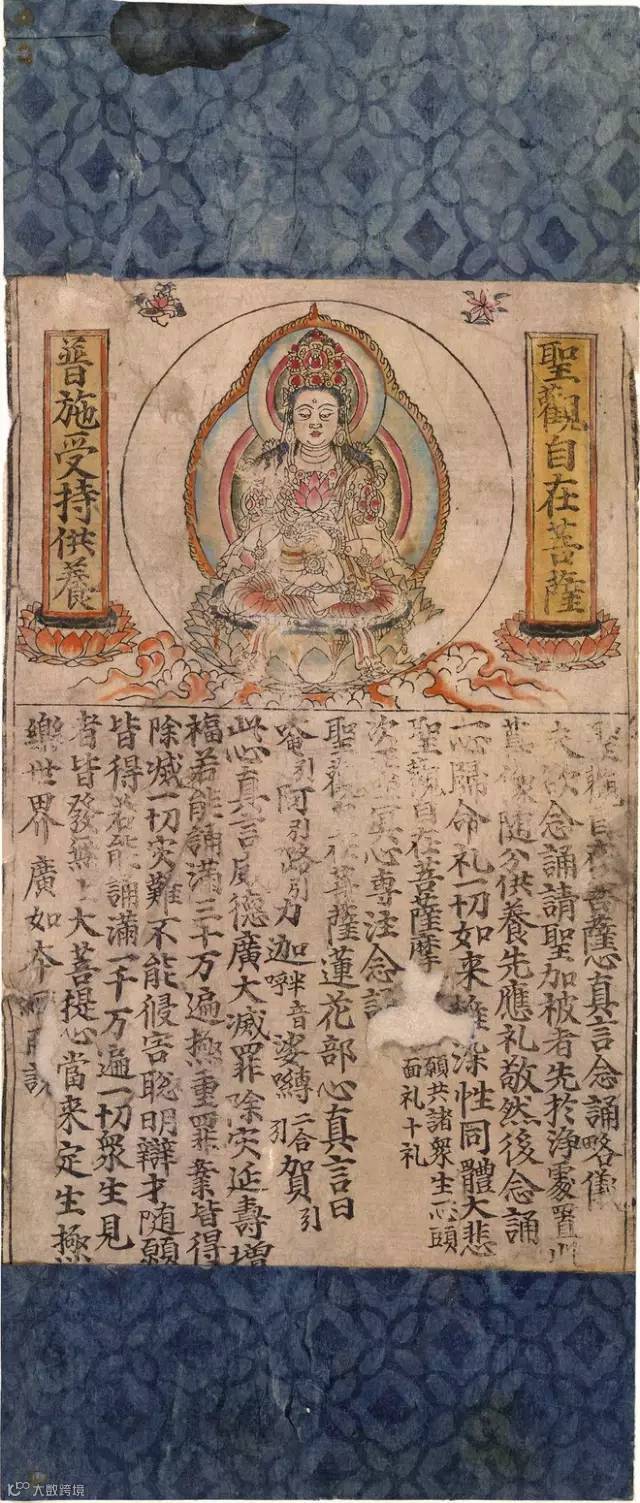 聖觀自在菩薩
普施受持供養
聖觀自在菩薩心真言念誦略儀
夫欲念誦請聖加被者先於淨處置此
尊像隨分供養先應礼敬然後念誦
一心歸命礼一切如來離染性同體大悲
聖觀自在菩薩摩 願共諸衆生一心頭
面礼十礼
次 冥心專注念誦
聖觀自在菩薩蓮花部心真言曰
唵引阿引路引力迦半音呼娑嚩二合引賀引
此心真言威德廣大滅罪除灾延壽增
福若能誦滿三十万遍極重罪業皆得
除滅一切灾難不能侵害聡明辯才随願
皆得若能誦滿一千万遍一切衆生見
者皆發無上大菩提心當来定生極
樂世界廣如本 説
大数跨境